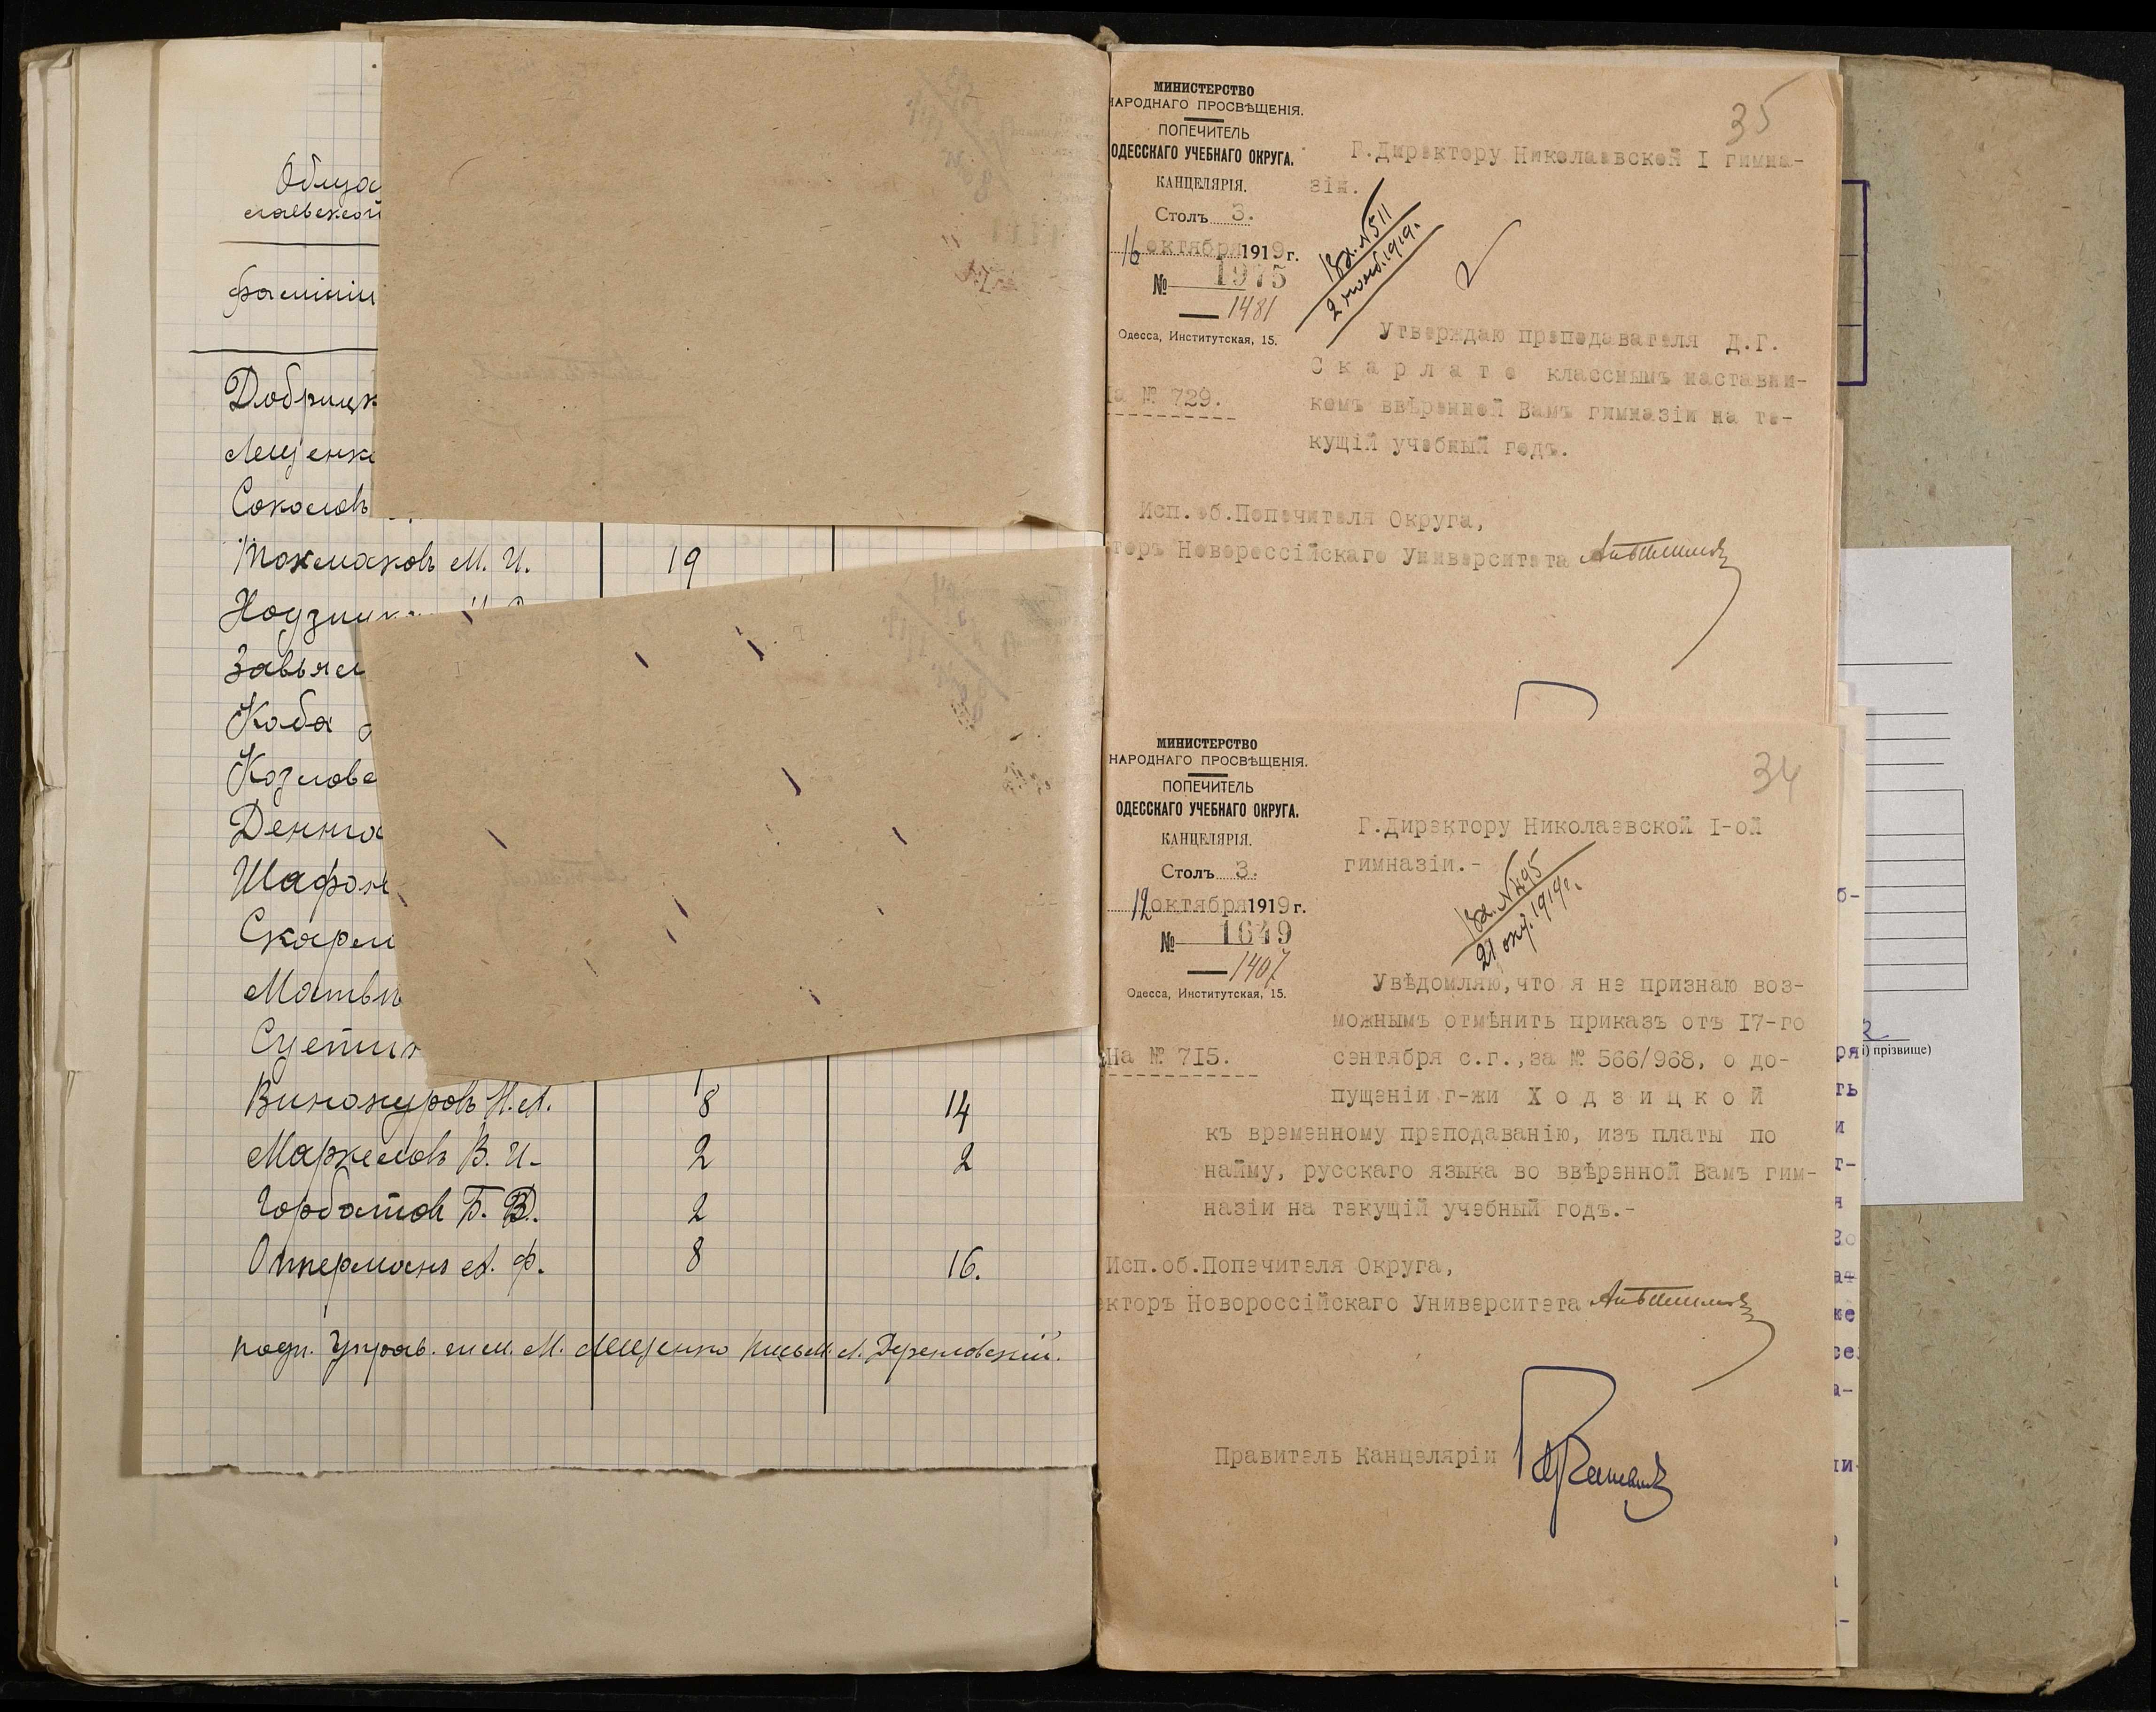 Фамиліи
Соколовъ
Токмаковъ М. И. 19
Завьял
Коба
Козловс
Шафон
Скарл
Матвѣ
Сцепин
Винокуровъ Н. А. 8 14
Маркеловъ В. И. 2 2
Горбатов Б. В. 2
Оттерманъ А. Ф. 8 16.
МИНИСТЕРСТВО
НАРОДНАГО ПРОСВѢЩЕНІЯ.
ПОПЕЧИТЕЛЬ
ОДЕССКАГО УЧЕБНАГО ОКРУГА.
КАНЦЕЛЯРІЯ.
Столъ 3.
16 октября 1919 г.
№ 1975
1481
Одесса, Институтская, 15.
На № 729.
35
Г.Директору Николаевской I гимна-
зіи.
Вх. №511
2 нояб. 1919 г.
Утверждаю преподавателя Д.Г.
Скарлато класснымъ наставни-
комъ ввѣренной Вамъ гимназіи на те-
кущій учебный годъ.
Исп.об.Попечителя Округа,
торъ Новороссійскаго Университета
МИНИСТЕРСТВО
НАРОДНАГО ПРОСВѢЩЕНІЯ.
ПОПЕЧИТЕЛЬ
ОДЕССКАГО УЧЕБНАГО ОКРУГА.
КАНЦЕЛЯРІЯ.
Столъ 3.
12 октября 1919 г.
№ 1649
1407
Одесса, Институтская, 15.
На № 715.
34
Г.Директору Николаевской I-ой
гимназіи.-
Вх. №495
21 окт. 1919 г.
Увѣдомляю,что я не признаю воз-
можнымъ отмѣнить приказъ отъ 17-го
сентября с.г.,за № 566/968, о до-
пущеніи г-жи Ходзицкой
къ временному преподаванію, изъ платы по
найму, русскаго языка во ввѣренной Вамъ гим-
назіи на текущій учебный годъ.-
Исп.об.Попечителя Округа,
екторъ Новороссійскаго Университета
Правитель Канцеляріи
і) прізвище)